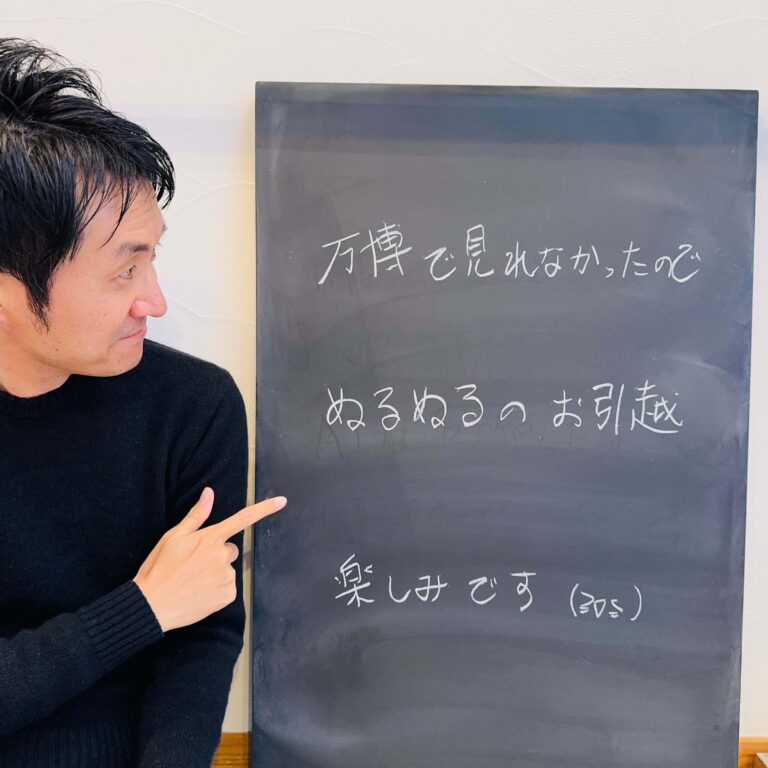 万博で見れなかったので
ぬるぬるのお引越
楽しみです(≧▽≦)